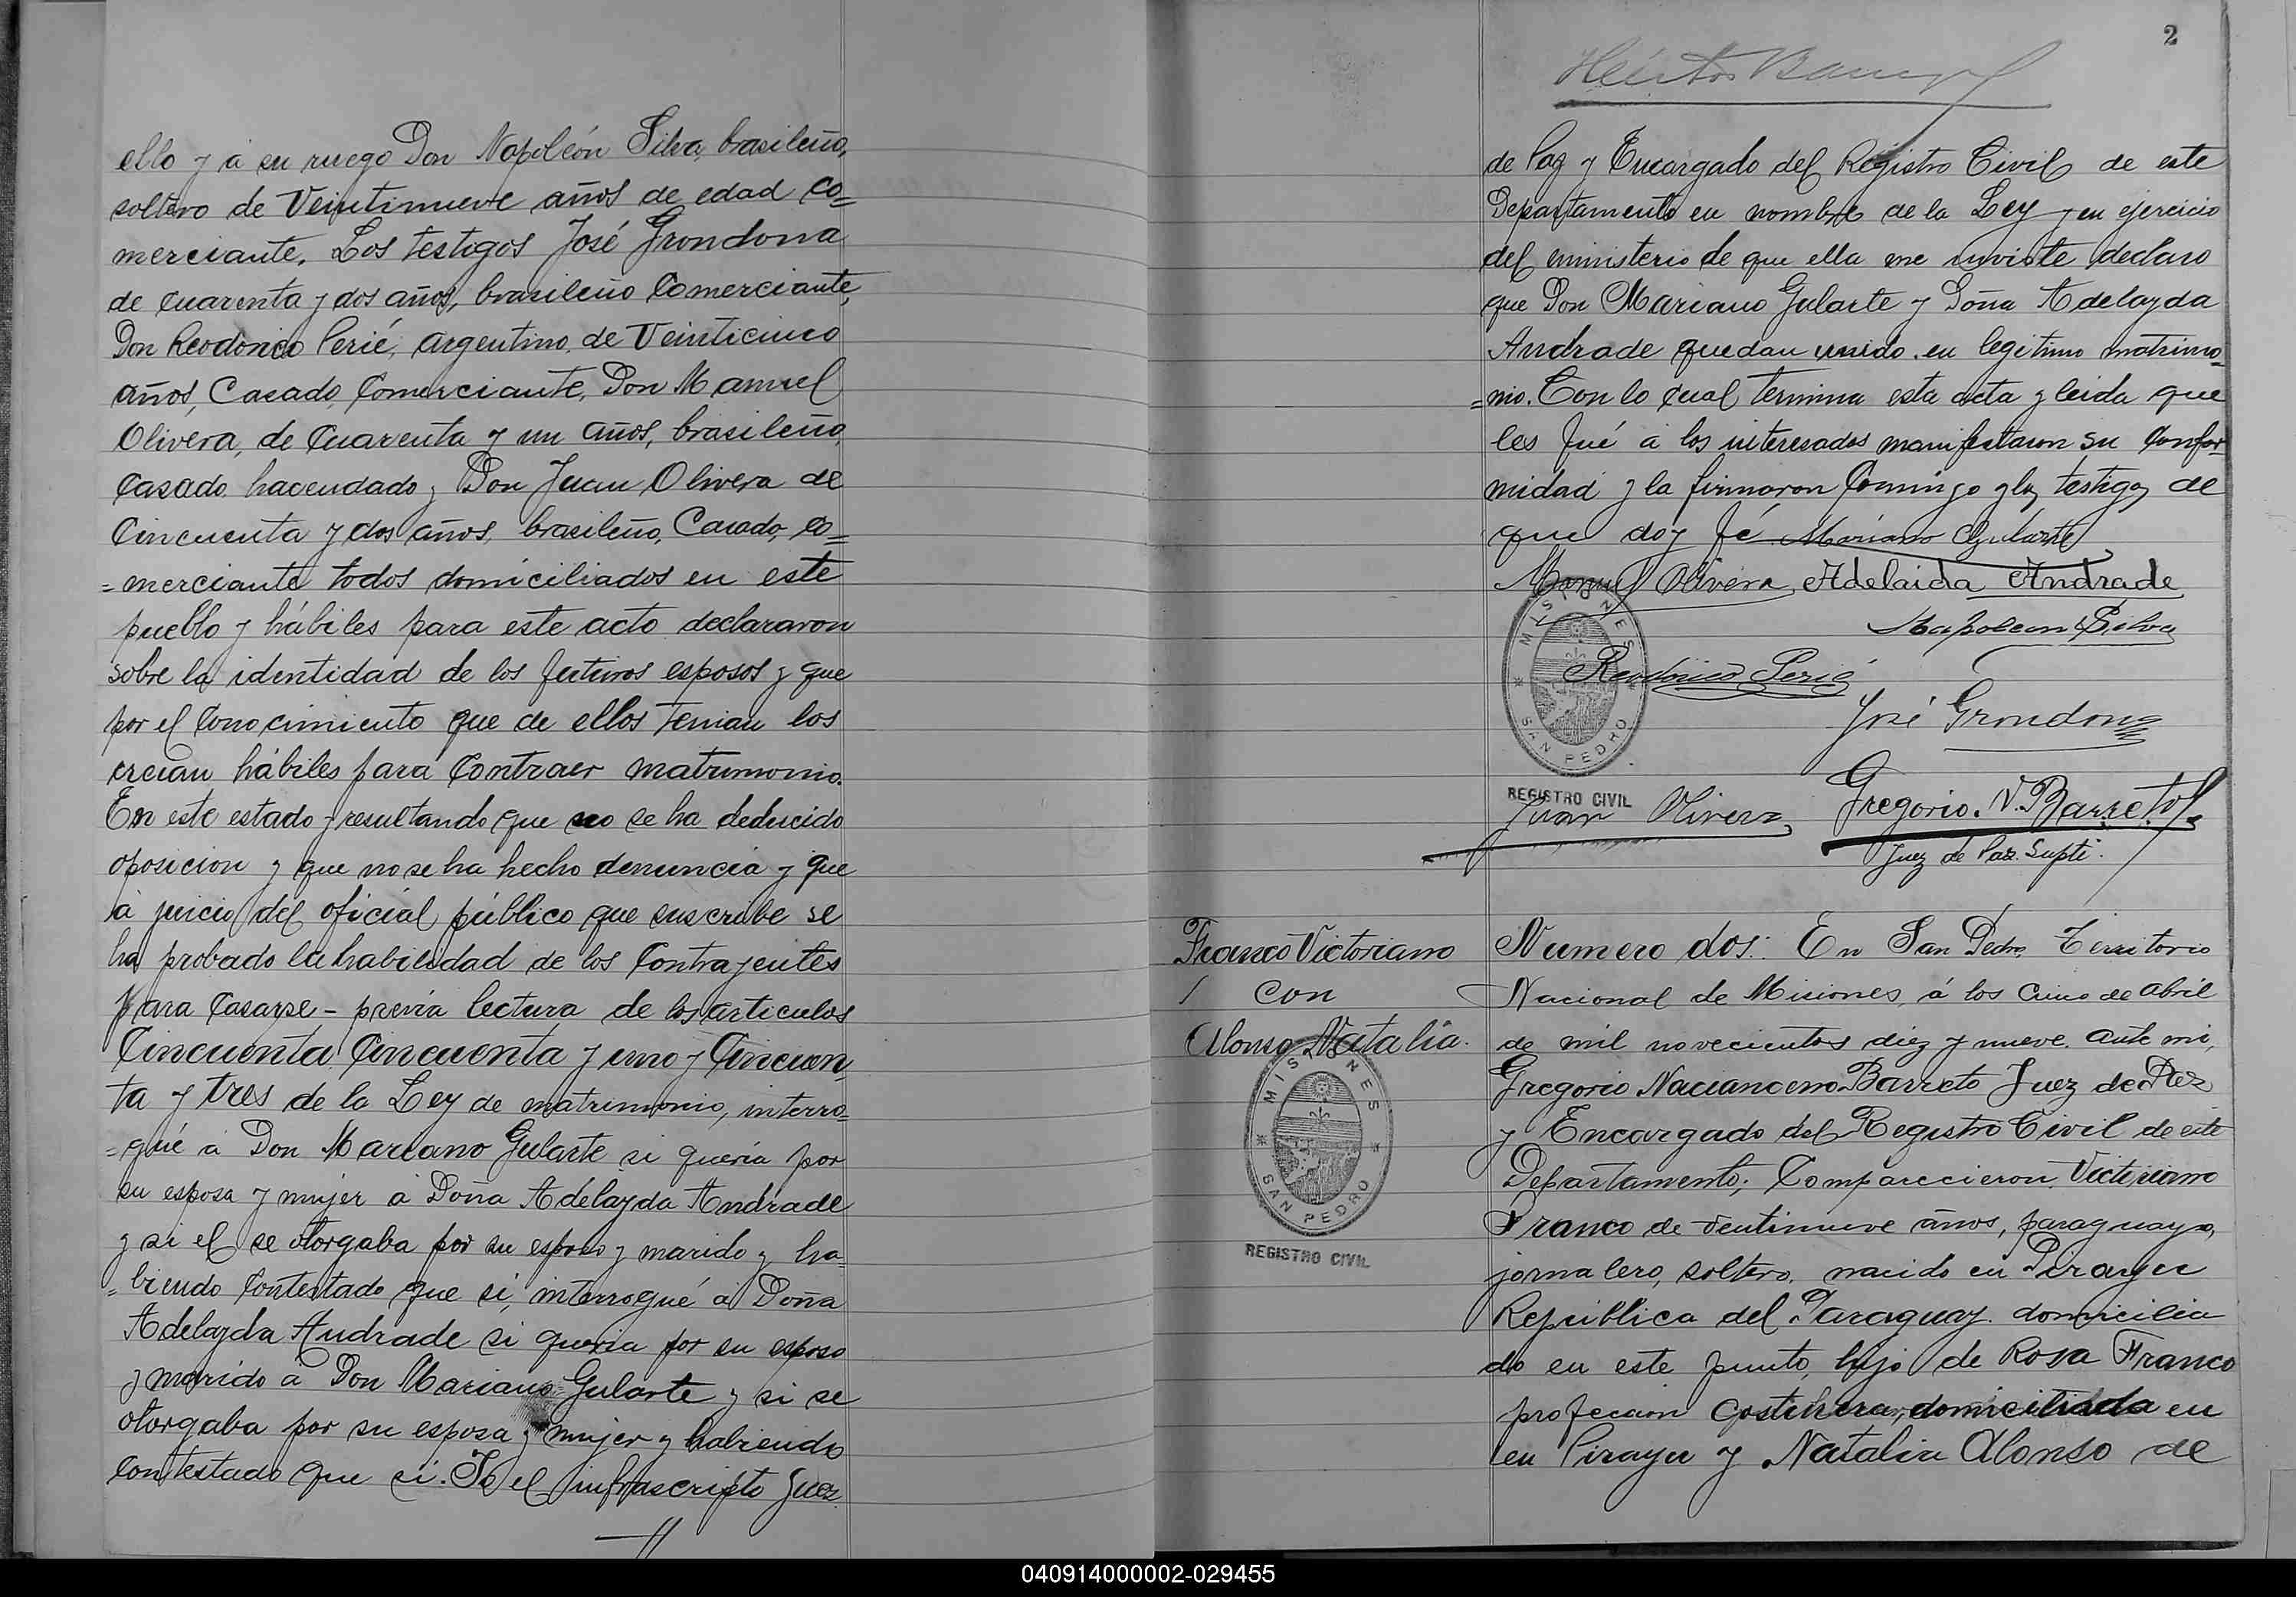 ello y á su ruego Don Napoleón Silva, brasileño,
soltero de Veintinueve años de edad co=
merciante. Los testigos José Grondona
de cuarenta y dos años, brasileño Comerciante,
Don Reodorico Perié, argentino de Veinticinco
años, Casado, Comerciante, Don Manuel
Olivera, de Cuarenta y un años, brasileño,
Casado hacendado y Don Juan Olivera de
Cincuenta y dos años, brasileño, Casado, co=
=merciante todos domiciliados en este
pueblo y hábiles para este acto declararon
sobre la identidad de los futuros esposos y que
por el Conocimiento que de ellos tenian los
creian hábiles para Contraer matrimonio.
En este estado y resultando que no se ha deducido
oposicion y que no se ha hecho denuncia y que
á juicio del oficial público que suscribe se
ha probado la habilidad de los Contrayentes
para Casarse - previa lectura de los articulos
Cincuenta Cincuenta y uno y Cincuen
ta y tres de la Ley de matrimonio, interro=
=gué á Don Mariano Gularte si queria por
su esposa y mujer á Doña Adelayda Andrade
y si el se otorgaba por su esposo y marido y ha=
=biendo Contestado que si, interrogué á Doña
Adelayda Andrade si queria por su esposo
y marido á Don Mariano Gularte y si se
otorgaba por su esposa y mujer y habiendo
Contestado que si. Yo el infrascripto Juez
2
de Paz y Encargado del Registro Civil de este
Departamento en nombre de la Ley y en ejercicio
del ministerio de que ella me inviste declaro
que Don Mariano Gularte y Doña Adelayda
Andrade quedan unido en legitimo matrimo=
=nio. Con lo cual termina esta acta y leida que
les fué á los interesados manifestaron su Confor
midad y la firmaron Conmigo y los testigos de
que doy fé Mariano Gularte
Manuel Olivera Adelaida Andrade
Napoleon Silva
Reodorico Perié
José Grondona
Juan Olivera Gregorio. N. Barreto
Juez de Paz. Supte.
MISIONES
SAN PEDRO
REGISTRO CIVIL
Franco Victoriano
con
Alonso Natalia.
MISIONES
SAN PEDRO
REGISTRO CIVIL
Numero dos: En San Pedro, Territorio
Nacional de Misiones, á los Cinco de abril
de mil novecientos diez y nueve, ante mi,
Gregorio Nacianceno Barreto Juez de Paz
y Encargado del Registro Civil de este
Departamento; Comparecieron Victoriano
Franco de Veintinueve años, paraguayo,
jornalero, soltero, nacido en Pirayu
República del Paraguay. domicilia
do en este punto, hijo de Rosa Franco
profecion Costurera, domiciliada en
en Pirayu y Natalia Alonso de
040914000002-029455